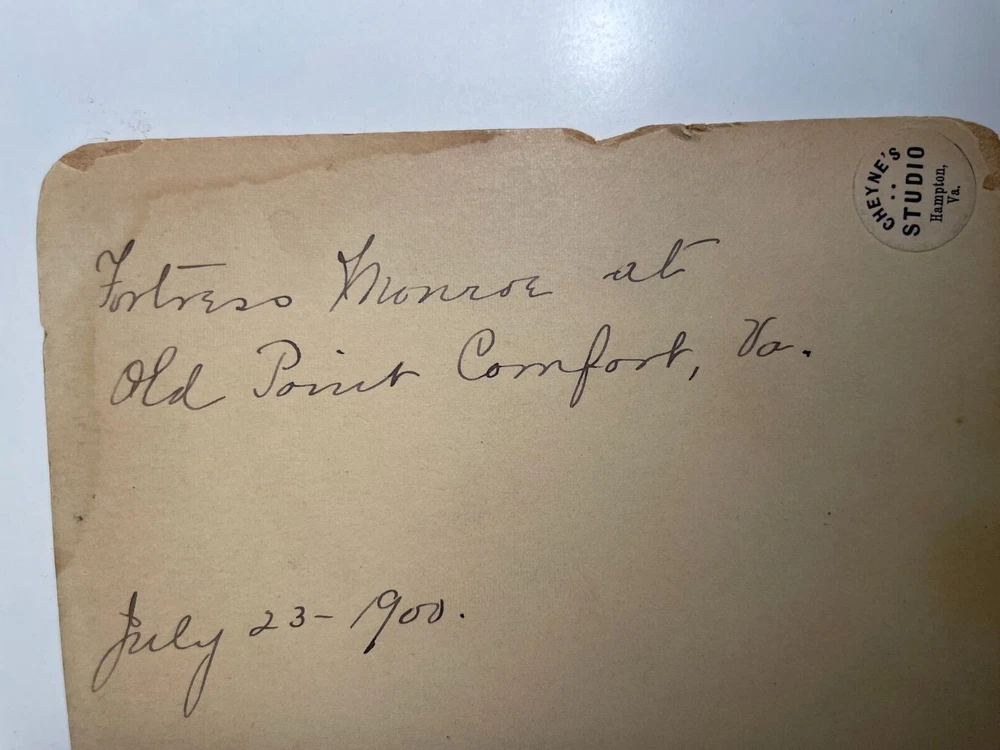 Fortress Monroe at
Old Point Comfort, Va.
July 23 - 1900.
CHEYNE'S
STUDIO
Hampton,
Va.